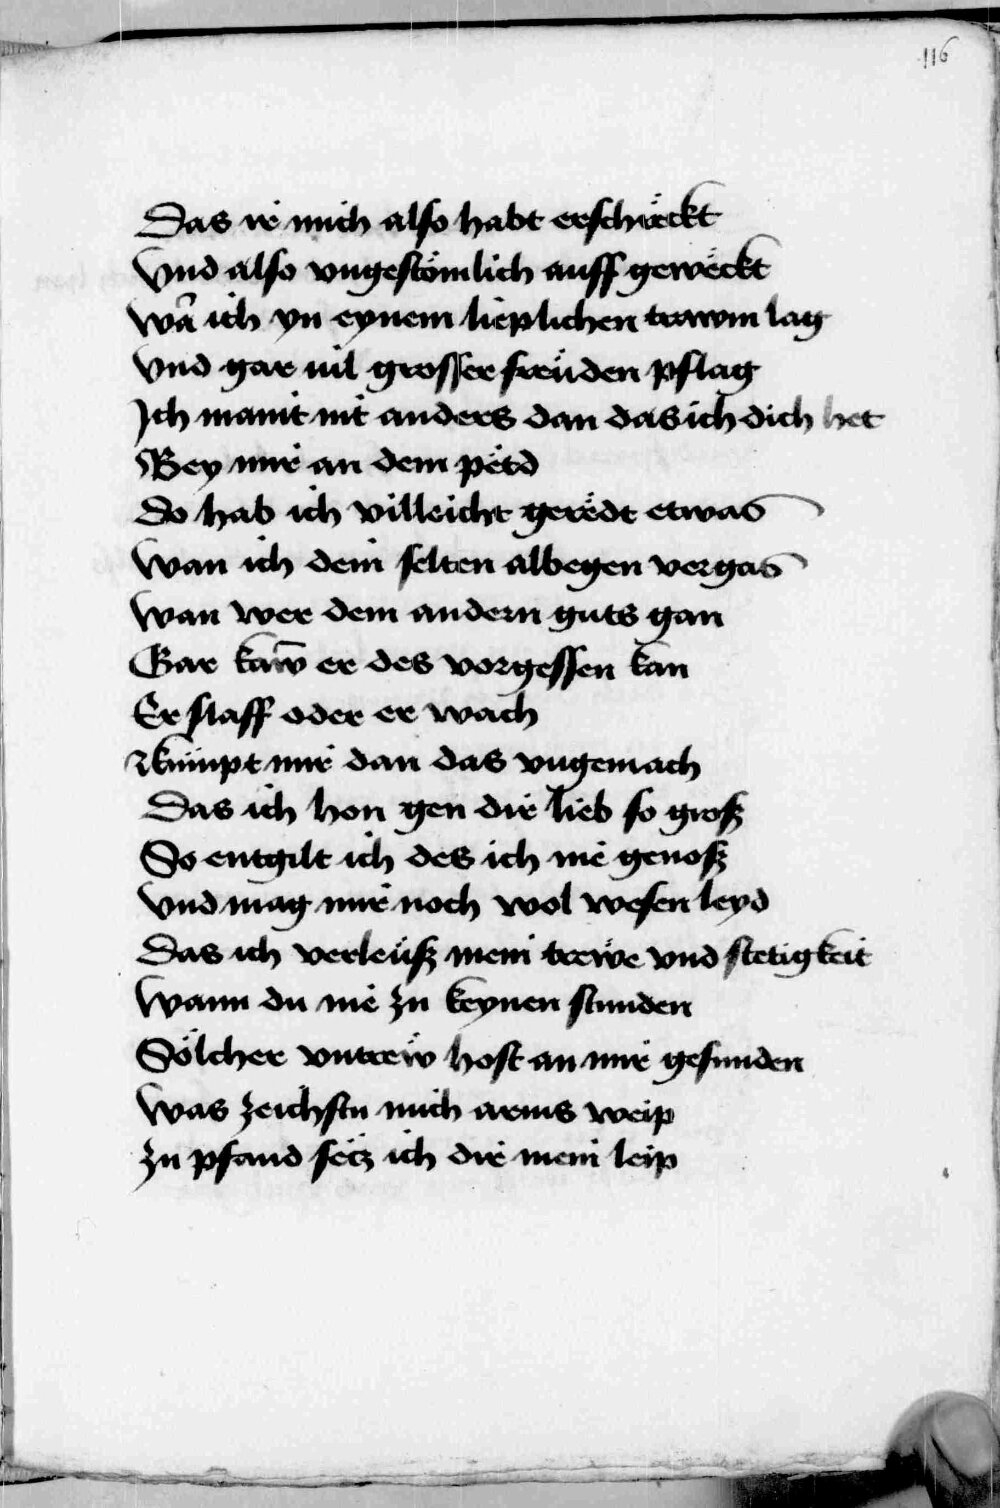 116
Das ir mich also habt erschröckt
Vnd also vngestömlich auff gewëckt
Wan̄ ich yn eynem lieplichen trawm lag
Vnd gar uil grosser freüden pflag
Ich maint nit anders dan das ich dich het
Bey mir an dem pëtd
Do hab ich villeicht gerëdt etwas
Wan ich dein selten albegen vergas
Wan wer dem andern guts gan
Gar kaw̄ er des vorgessen kan
Er slaff oder er wach
Kümpt mir dan das vngemach
Das ich hon gen dir lieb so groß
So entgilt ich des ich nie genoß
Vnd mag mir noch wol wesen leyd
Das ich verleüß mein trewe vnd stetigkeit
Wann du nie zu keynen stunden
Sölcher vntrew host an mir gefunden
Was zeichstu mich arms weip
Zu pfand setz ich dir mein leip